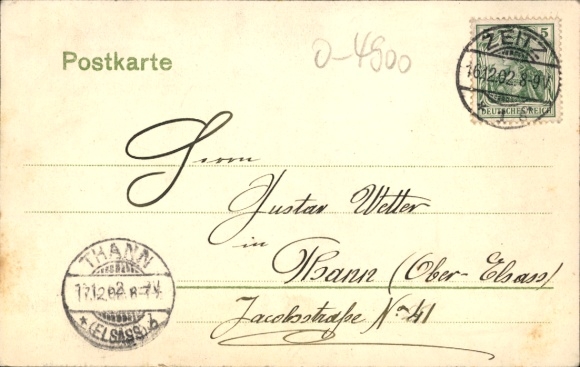 Postkarte
0-4900
5
DEUTSCHES REICH
ZEITZ
16.12.02. 8-9V.
Herrn
Gustav Wetter
in
Thann (Ober-Elsass)
Jacobstraße No 41
THANN
17.12.02. 8-9V.
* (ELSASS) *